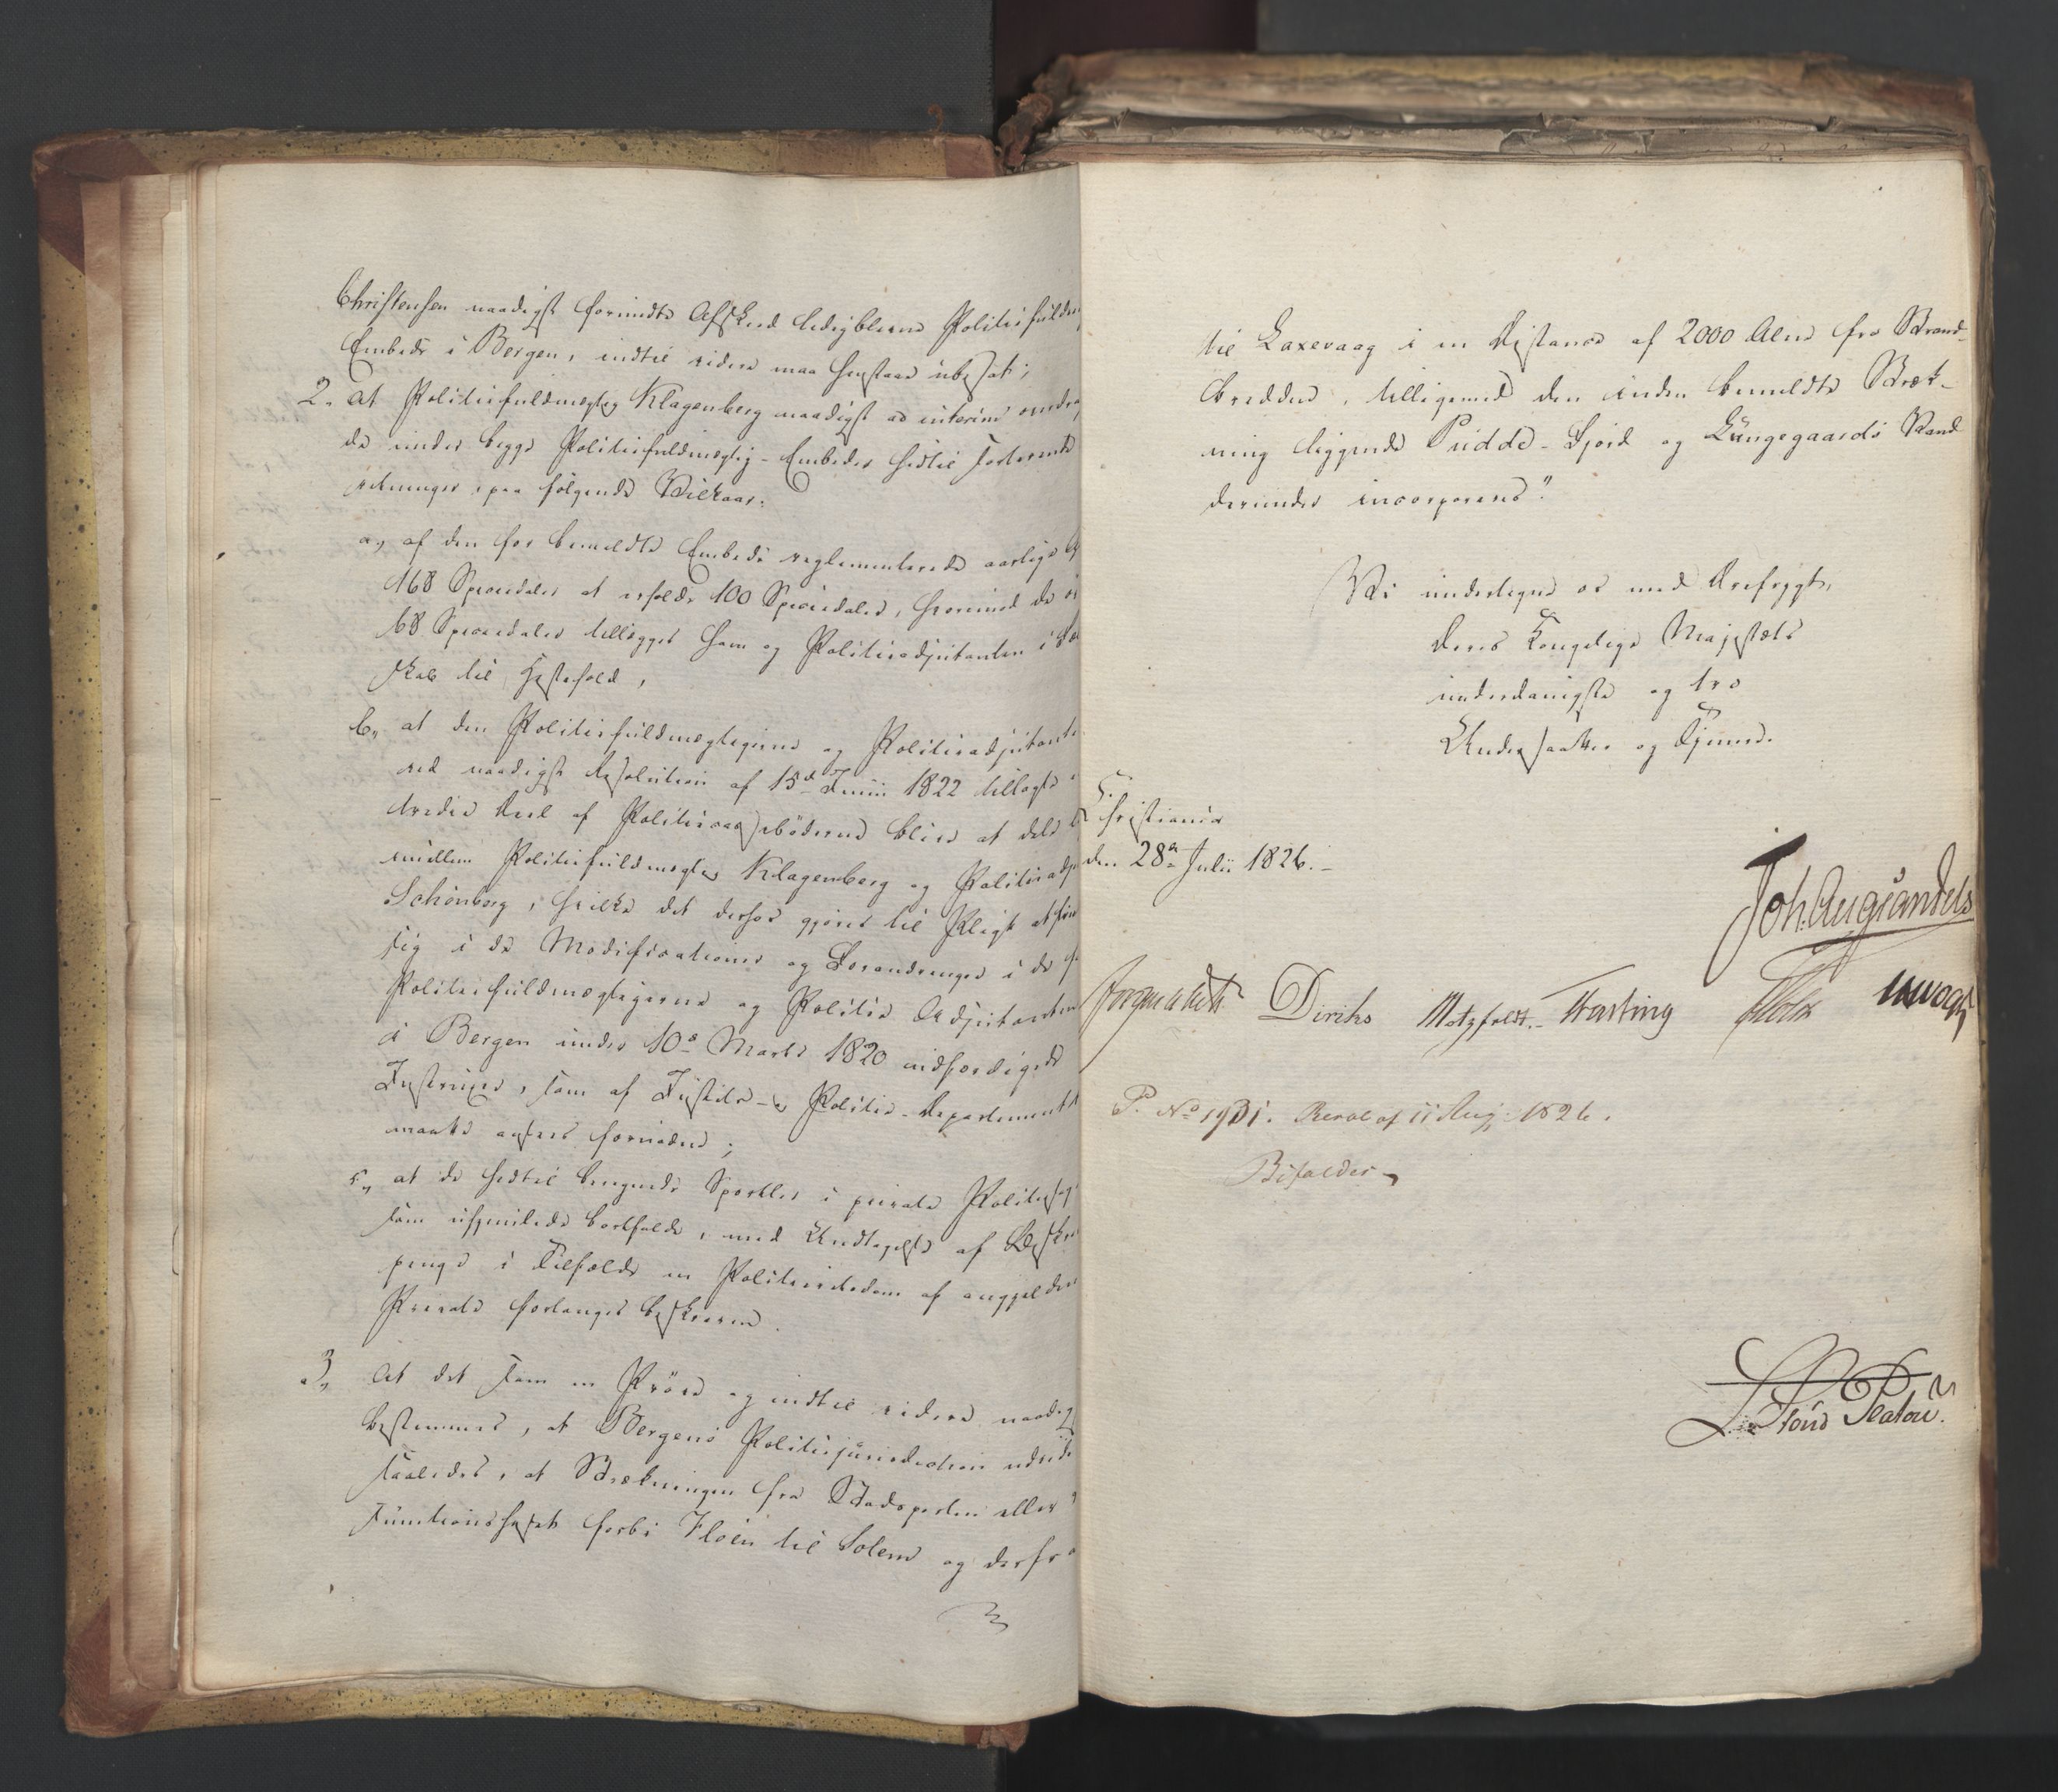 Christensen naadigst forundte Afskeed ledigblevne Politifuldm
Embede i Bergen, indtil videre maa henstaae ubesat;
2. at Politiefuldmægtig Klagenberg naadigst ad interim
de under begge Politiefuldmægtig-Embeder hidtil sorterende
retninger, paa følgende Vilkaar:
a, af den for bemeldte Embede reglementerede aarlige
168 Speciedaler at erholde 100 Speciedaler, hvorimod de
68 Speciedaler tillægges ham og Politieadjutanten i
skab til Hestehold,
b, at den Politiefuldmægtigerne og Politieadjutanten
ved naadigst Resolution af 15de Junii 1822 tillagte
tredie Deel af Politiesagsbøderne bliver at dele
mellem Politiefuldmægtig Klagenberg og Politieadju
Schönberg, hvilke det derhos gjøres til Pligt at finde
sig i de Modificationer og Forandringer i de
Politiefuldmægtigerne og Politie Adjutanten
i Bergen under 10de Marts 1820 udfærdigede
Instruxer, som af Justits- og Politie-Departementet
maatte ansees fornødne;
c, at de hidtil brugende Sportler i private Politiesag
som ufhjemlede bortfalde, med Undtagelse af Beskri
penge i Tilfælde en Politieretsdom af angjeldende
Private forlanges beskreven.
3, At det som en Prøve og indtil videre naadigst
bestemmes, at Bergens Politiejurisdiction udvid
saaledes, at Strækningen fra Stadsporten eller
Funtionshuset forbi Fløen til Solem og derfra
til Laxevaag i en Distance af 2000 Alen fra Strand-
bredden, tilligemed den inden bemeldte Stræk-
ning liggende Pudde-Fjord og Lungegaards Vand
derunder incorporeres".
Vi undertegne os med Ærefrygt,
Deres Kongelige Majestæts
underdanigste og tro
Undersaatter og Tjenere.
Christiania
den 28de Julii 1826.-
Joh. Aug. Sandels
Diriks Motzfeldt.- Fasting Holst
P. No 1931. Resol af 11 Aug: 1826.
Bifaldes
Louis Platou.